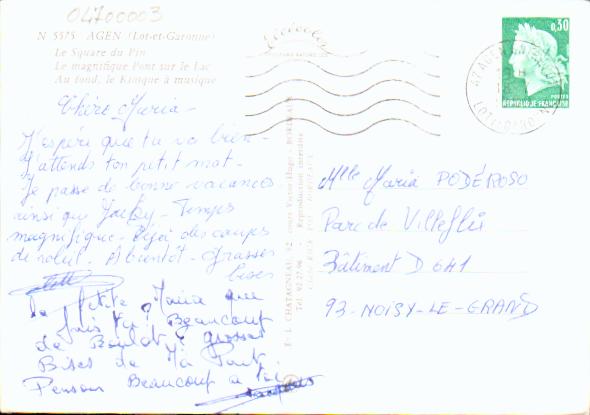 04700003
N 5575 AGEN (Lot-et-Garonne)
Le Square du Pin
Le magnifique Pont sur le Lac
Au fond, le Kiosque à musique
0,30
POSTES
REPUBLIQUE FRANÇAISE
47 AGEN
LOT-ET-GARONNE
Chère Maria -
J'espère que tu va bien -
J'attends ton petit mot -
Je passe de bonne vacances
ainsi que - Temps
magnifique - des coups
de soleil - A bientôt - Grosses
bises
la Petite Maria que
fais tu? Beaucoup
de Boulot? grosses
Bises de Ma Part
Penson Beaucoup a toi
Jacques
E.-J. CHATAGNEAU, 92 cours Victor-Hugo - BORDEAUX
Tél. 92-27-96 - Reproduction interdite
Mlle Maria PODÉROSO
Parc de Villeflix
Bâtiment D 641
93 - NOISY-LE-GRAND